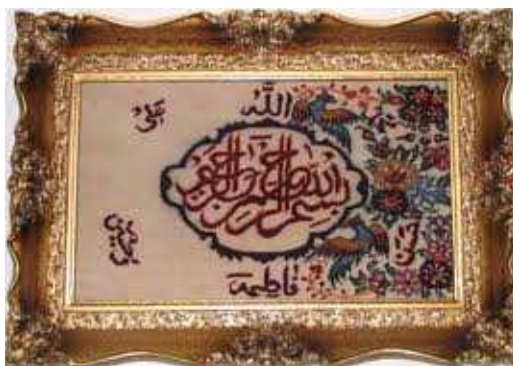 الله
علی
بسم الله الرحمن الرحیم
حسن
حسین
فاطمه